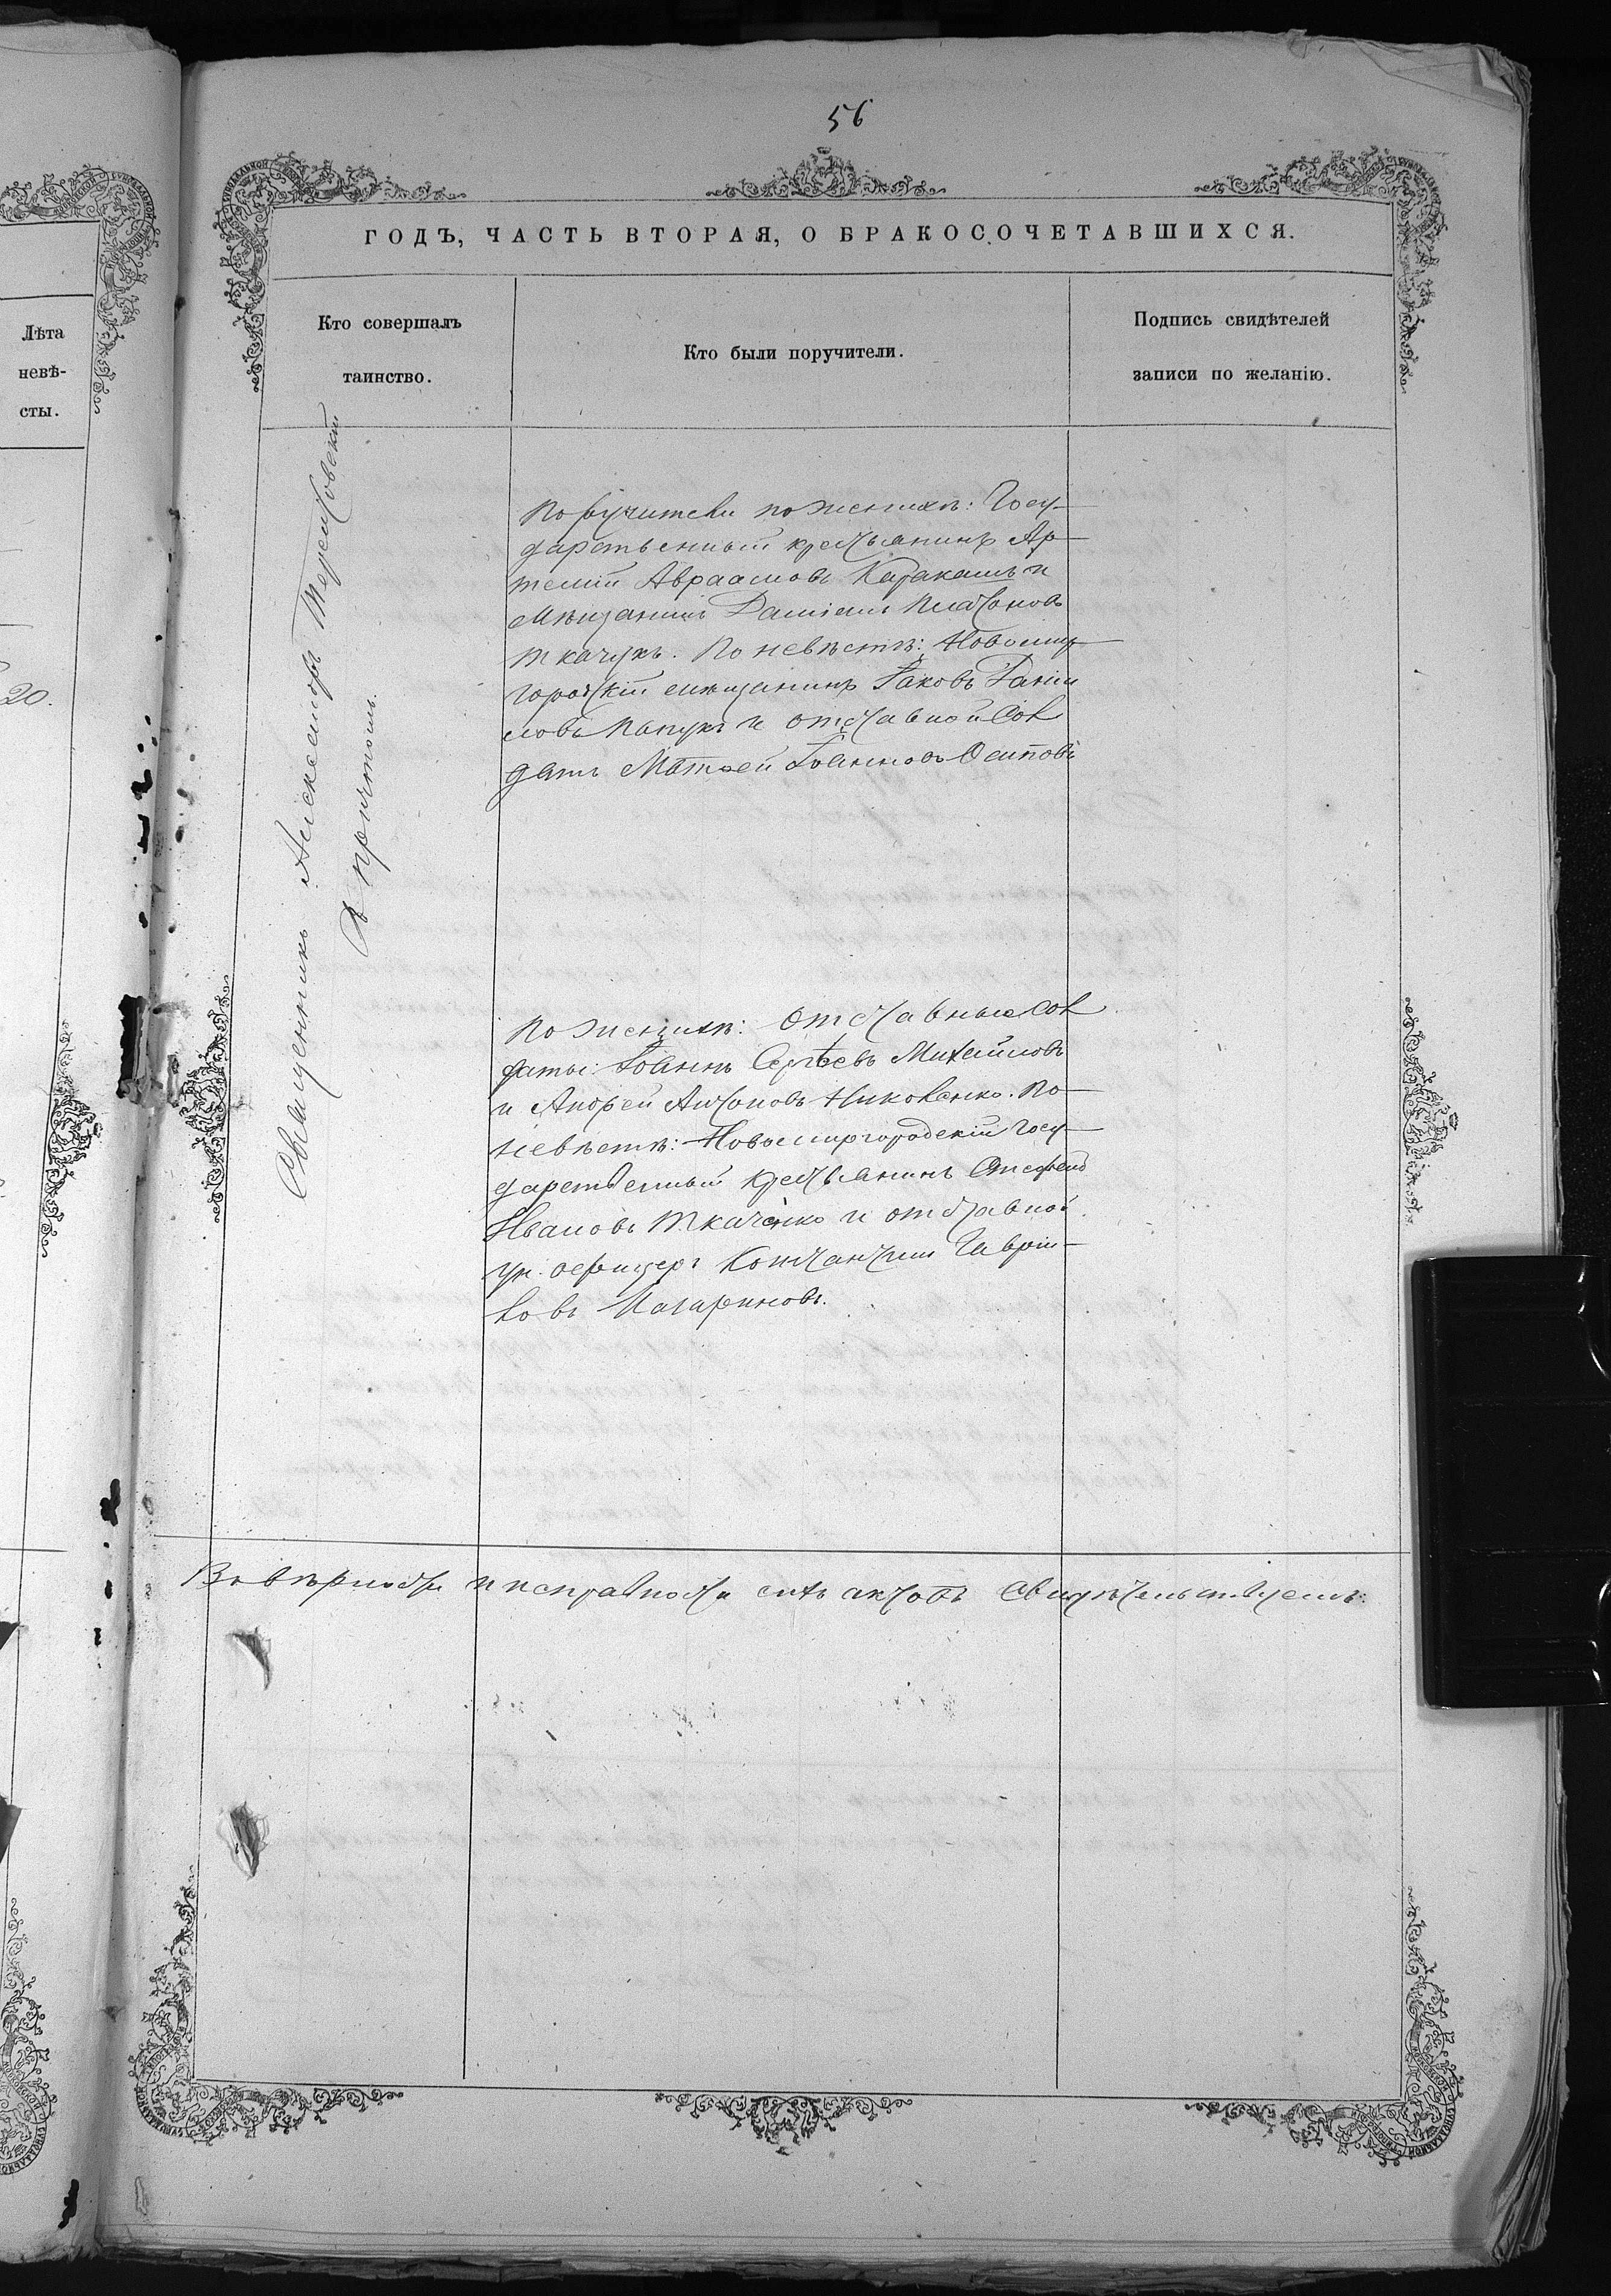 56
ГОДЪ, ЧАСТЬ ВТОРАЯ, О БРАКОСОЧЕТАВШИХСЯ.
Лѣта
невѣ-
сты.
20.
Кто совершалъ
таинство.
Кто были поручители.
Подпись свидѣтелей
записи по желанію.
Священникъ Александръ
съ причтомъ.
Поручители по женихѣ: Госу-
дарственный крестьянинъ Ар-
темій Авраамовъ Каракашъ и
мѣщанинъ Даміанъ Платоновъ
Ткачукъ. По невѣстѣ: Новомир-
городскій мѣщанинъ Іаковъ Даніи
ловъ и отставной Сол
датъ Матѳей Іоанновъ Осиповъ
По женихѣ: Отставные Сол
даты: Іоаннъ Сергѣевъ Михайловъ
и Андрей Антоновъ Николенко. По
невѣстѣ: Новомиргородскій Госу-
дарственный крестьянинъ Стефанъ
Ивановъ Ткаченко и отставной
ун. офицеръ Константинъ Гаврии-
ловъ
Въ вѣрности и исправности сихъ актовъ свидѣтельствуемъ: